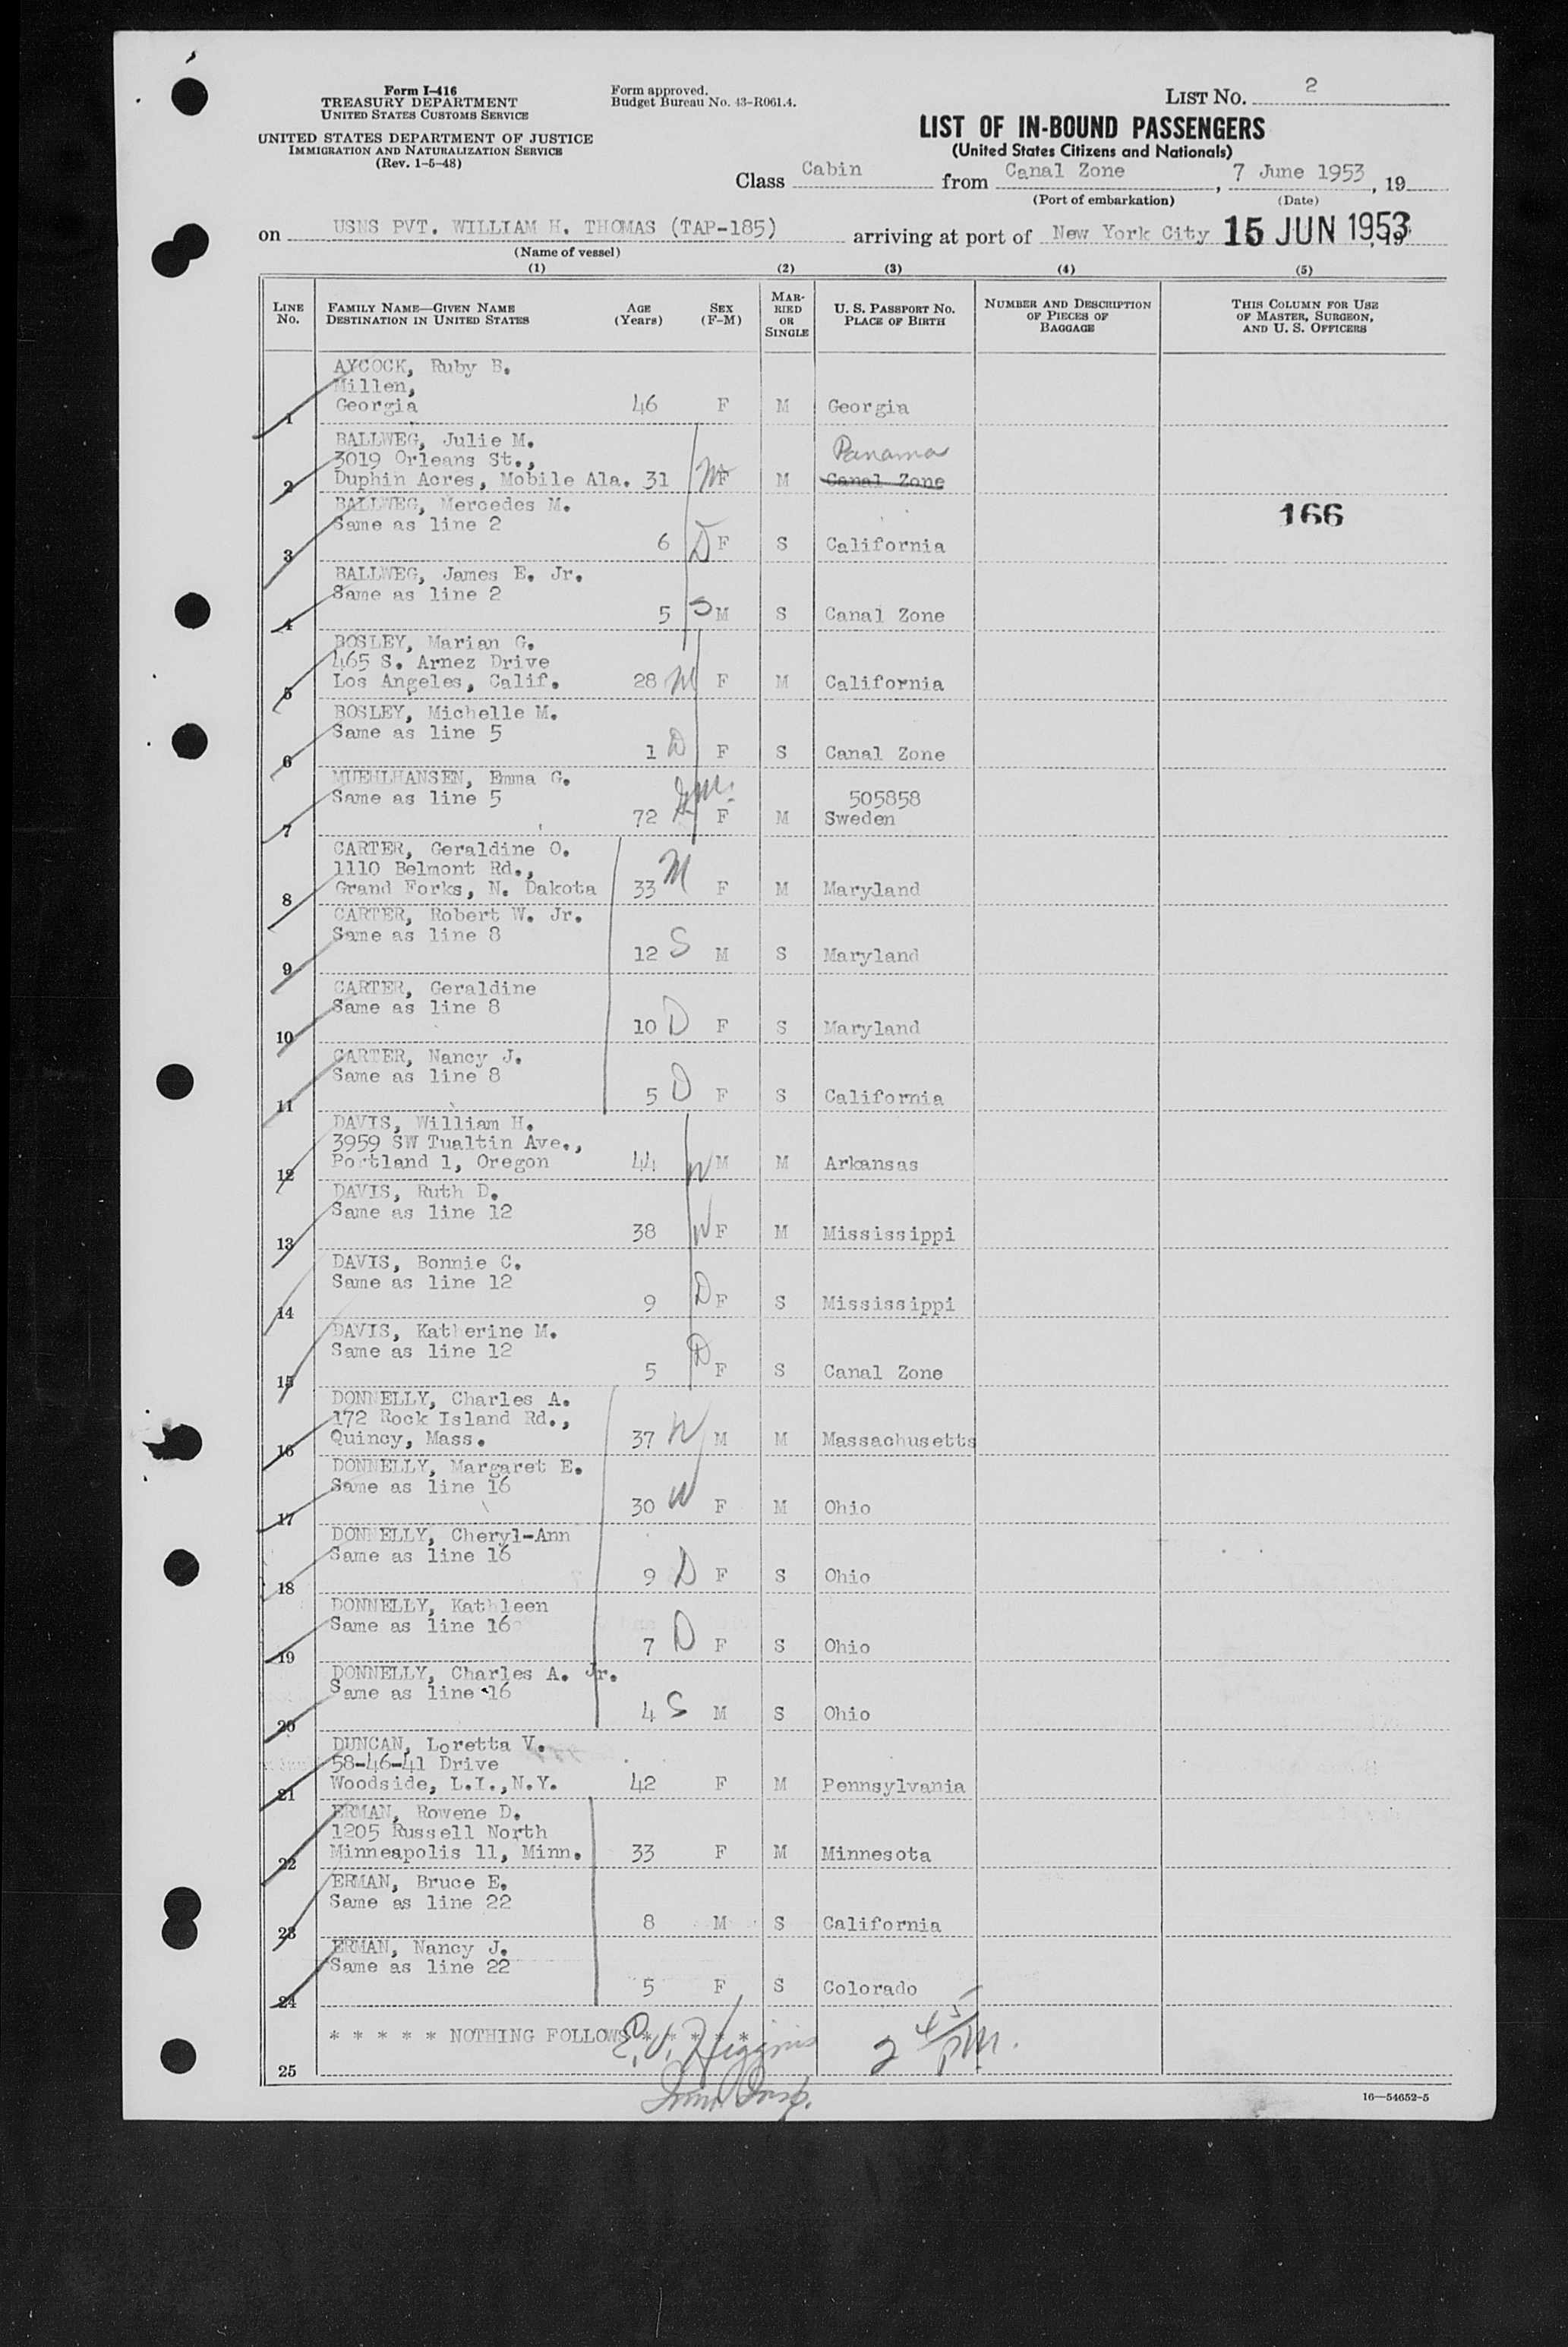 Form I-416
TREASURY DEPARTMENT
UNITED STATES CUSTOMS SERVICE
UNITED STATES DEPARTMENT OF JUSTICE
IMMIGRATION AND NATURALIZATION SERVICE
(Rev. 1-5-48)
Form approved.
Budget Bureau No. 43-R061.4.
LIST NO. 2
LIST OF IN-BOUND PASSENGERS
(United States Citizens and Nationals)
Class Cabin from Canal Zone, 7 June 1953, 19
(Port of embarkation) (Date)
on USNS PVT. WILLIAM H. THOMAS (TAP-185) arriving at port of New York City 15 JUN 1953, 19
(Name of vessel)
(1) (2) (3) (4) (5)
LINE NO.
FAMILY NAME—GIVEN NAME
DESTINATION IN UNITED STATES
AGE (Years)
SEX (F-M)
MARRIED OR SINGLE
U. S. PASSPORT NO.
PLACE OF BIRTH
NUMBER AND DESCRIPTION OF PIECES OF BAGGAGE
THIS COLUMN FOR USE OF MASTER, SURGEON, AND U. S. OFFICERS
AYCOCK, Ruby B.
Millen,
1 Georgia 46 F M Georgia
BALLWEG, Julie M.
3019 Orleans St., Panama
2 Duphin Acres, Mobile Ala. 31 M F M Canal Zone
BALLWEG, Mercedes M.
Same as line 2 166
3 6 D F S California
BALLWEG, James E. Jr.
Same as line 2
4 5 S M S Canal Zone
BOSLEY, Marian G.
465 S. Arnez Drive
5 Los Angeles, Calif. 28 M F M California
BOSLEY, Michelle M.
Same as line 5
6 1 D F S Canal Zone
MUEHLHANSEN, Emma G.
Same as line 5 505858
7 72 G.M. F M Sweden
CARTER, Geraldine O.
1110 Belmont Rd.,
8 Grand Forks, N. Dakota 33 M F M Maryland
CARTER, Robert W. Jr.
Same as line 8
9 12 S M S Maryland
CARTER, Geraldine
Same as line 8
10 10 D F S Maryland
CARTER, Nancy J.
Same as line 8
11 5 D F S California
DAVIS, William H.
3959 SW Tualtin Ave.,
12 Portland 1, Oregon 44 H M M Arkansas
DAVIS, Ruth D.
Same as line 12
13 38 W F M Mississippi
DAVIS, Bonnie C.
Same as line 12
14 9 D F S Mississippi
DAVIS, Katherine M.
Same as line 12
15 5 D F S Canal Zone
DONNELLY, Charles A.
172 Rock Island Rd.,
16 Quincy, Mass. 37 H M M Massachusetts
DONNELLY, Margaret E.
Same as line 16
17 30 W F M Ohio
DONNELLY, Cheryl-Ann
Same as line 16
18 9 D F S Ohio
DONNELLY, Kathleen
Same as line 16
19 7 D F S Ohio
DONNELLY, Charles A. Jr.
Same as line 16
20 4 S M S Ohio
DUNCAN, Loretta V.
58-46-41 Drive
21 Woodside, L.I.,N.Y. 42 F M Pennsylvania
ERMAN, Rowene D.
1205 Russell North
22 Minneapolis 11, Minn. 33 F M Minnesota
ERMAN, Bruce E.
Same as line 22
23 8 M S California
ERMAN, Nancy J.
Same as line 22
24 5 F S Colorado
* * * * * NOTHING FOLLOWS * * * * *
E.V. Higgins 2 45/PM.
25
Imm. Insp.
16—54652-5